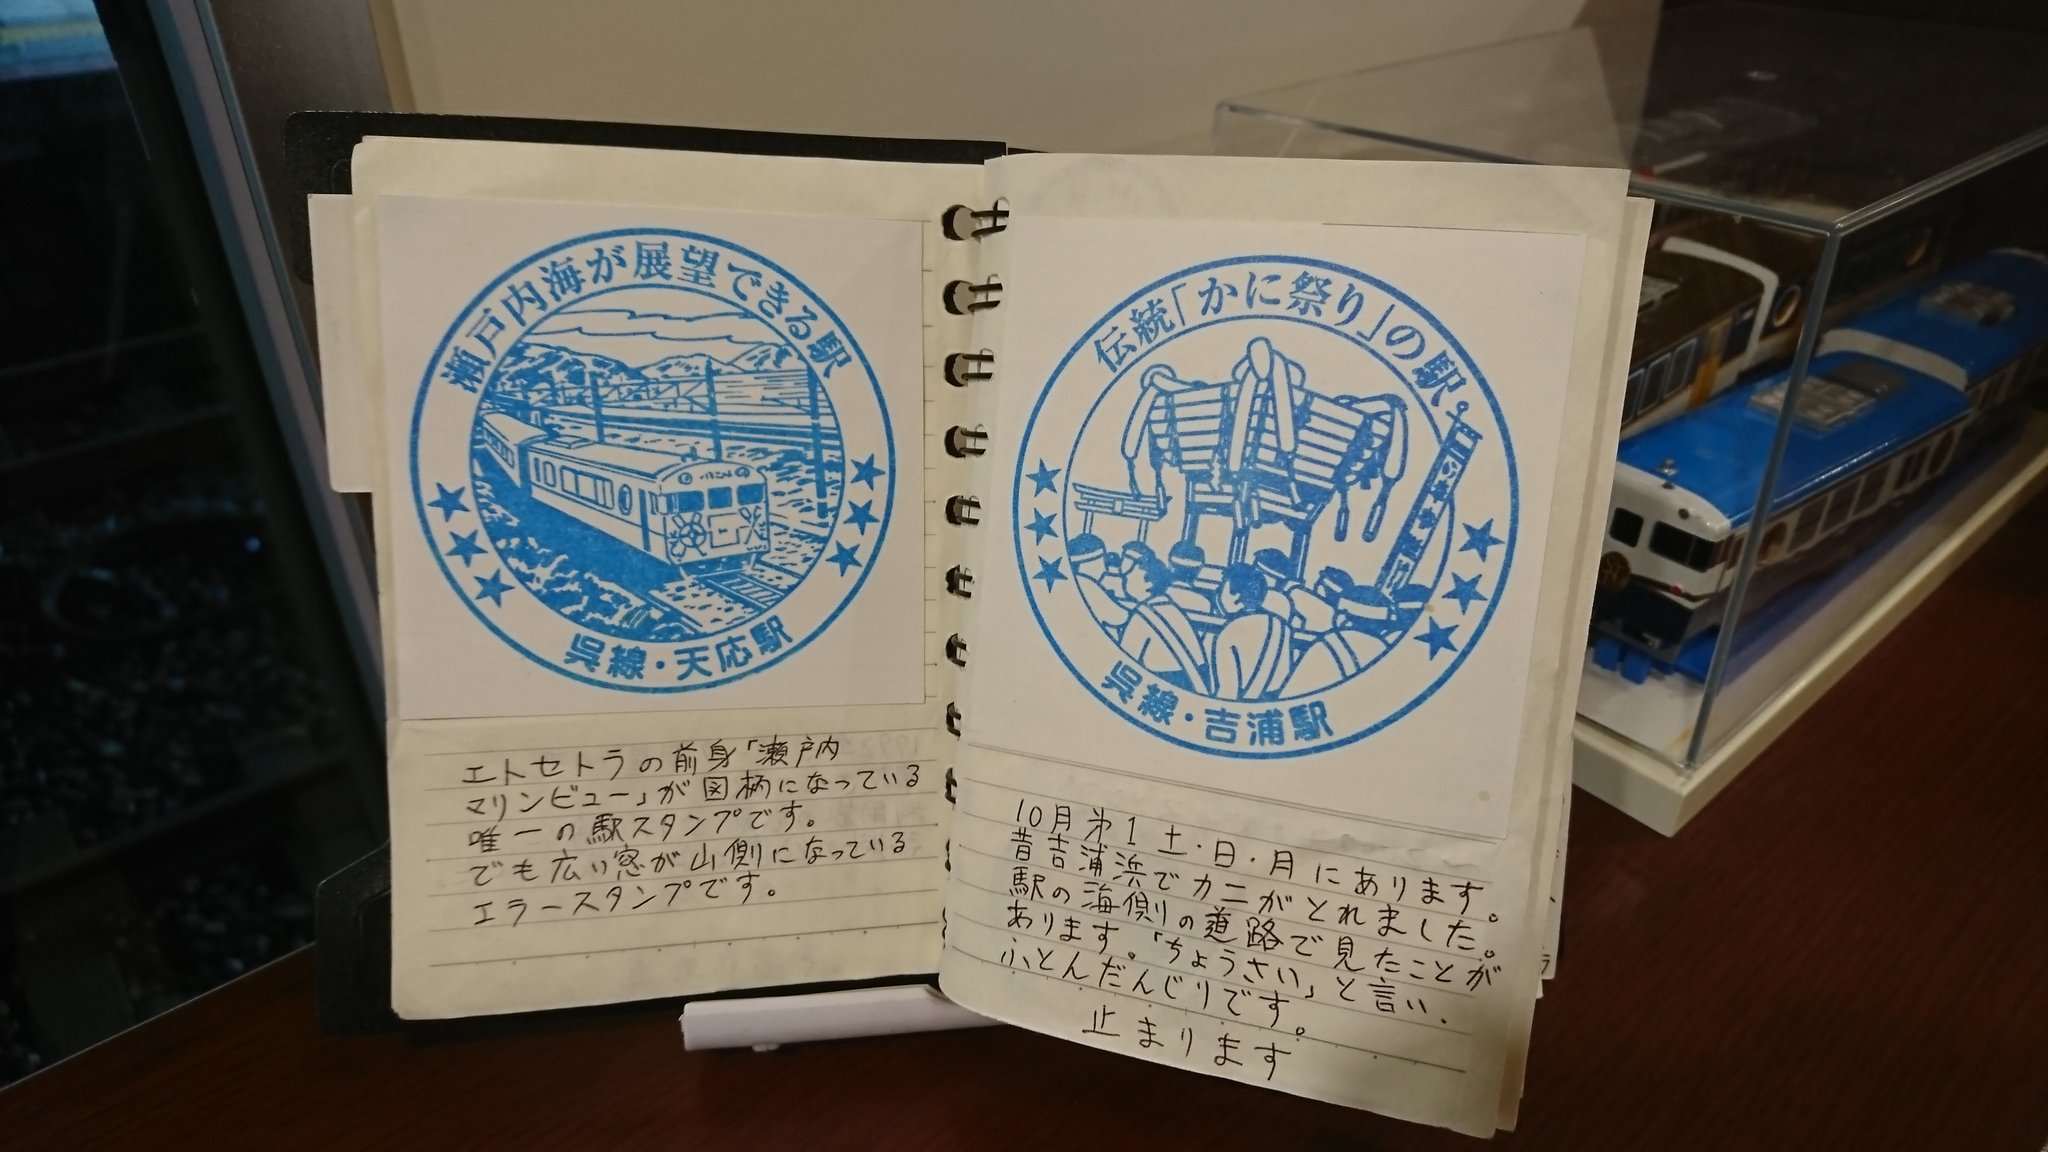 瀬戸内海が展望できる駅
呉線・天応駅
エトセトラの前身「瀬戸内
マリンビュー」が図柄になっている
唯一の駅スタンプです。
でも広い窓が山側になっている
エラースタンプです。
伝統「かに祭り」の駅
呉線・吉浦駅
10月第1土・日・月にあります。
昔吉浦浜でカニがとれました。
駅の海側の道路で見たことが
あります。「ちょうさい」と言い、
ふとんだんじりです。
止まります